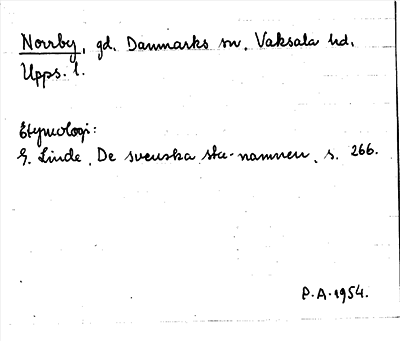 Norrby, gd. Danmarks sn, Vaksala hd,
Upps. l.
Etymologi:
G. Linde, De svenska sta-namnen, s. 266.
P.A. 1954.